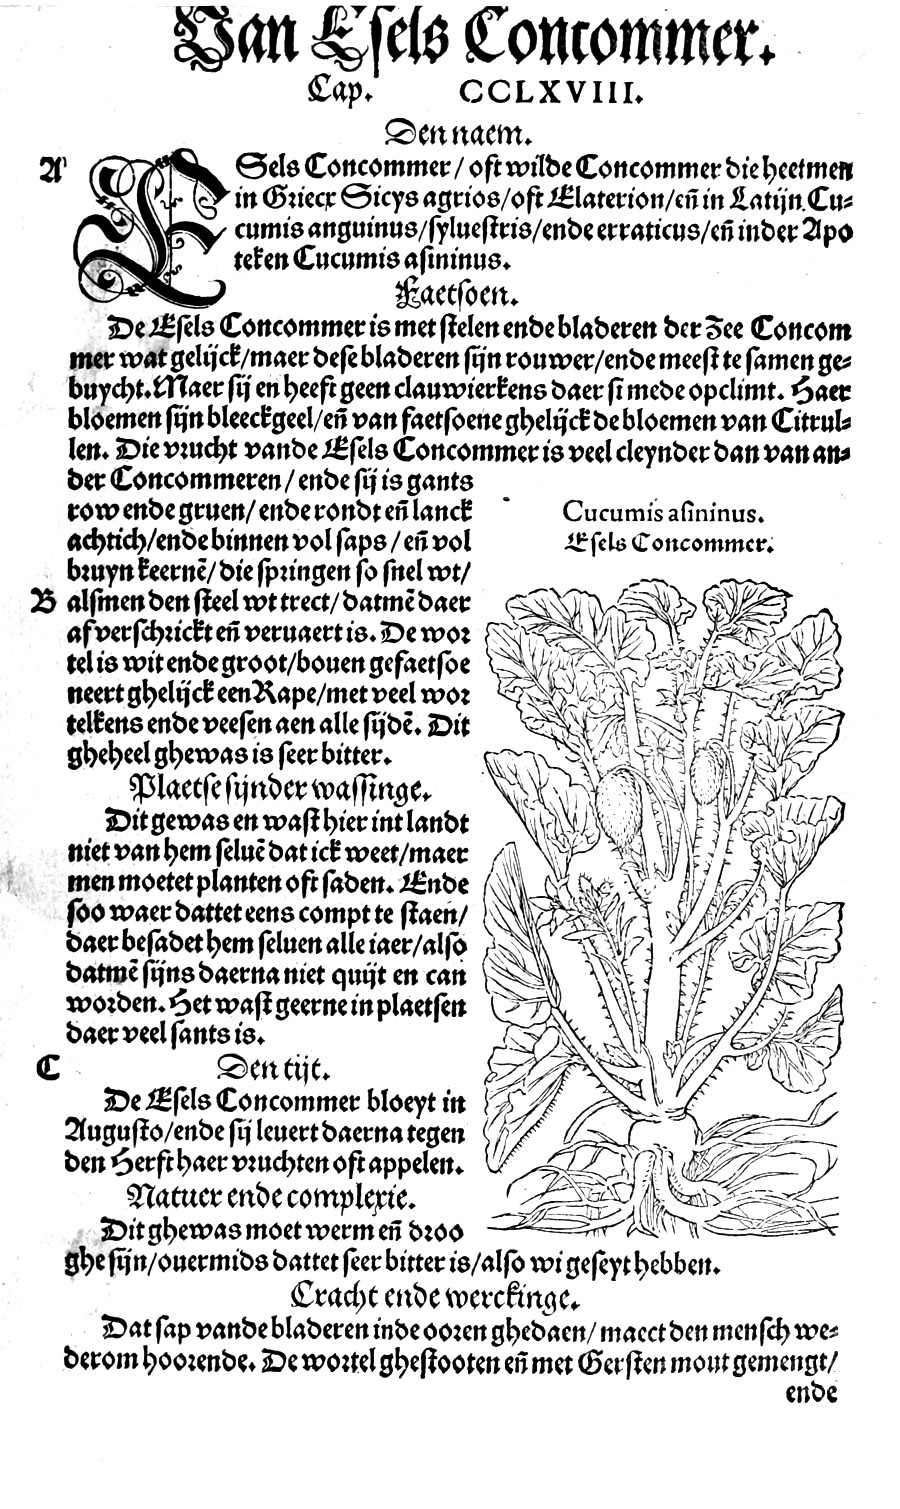 Van Esels Concommer.
Cap. CCLXVIII.
Den naem.
A
ESels Concommer / oft wilde Concommer die heetmen
in Griecx Sicys agrios/oft Elaterion/en̄ in Latijn Cu⸗
cumis anguinus/syluestris/ende erraticus/en̄ inder Apo
teken Cucumis asininus.
Faetsoen.
De Esels Concommer is met stelen ende bladeren der Zee Concom
mer wat gelijck/maer dese bladeren sijn rouwer/ende meest te samen ge⸗
buycht. Maer sij en heeft geen clauwierkens daer si mede opclimt. Haer
bloemen sijn bleeckgeel/en̄ van faetsoene ghelijck de bloemen van Citrul⸗
len. Die vrucht vande Esels Concommer is veel cleynder dan van an⸗
der Concommeren / ende sij is gants
row ende gruen/ ende rondt en̄ lanck
achtich/ende binnen vol saps / en̄ vol
bruyn keernē/ die springen so snel wt/
B
alsmen den steel wt trect/ datmē daer
af verschrickt en̄ veruaert is. De wor
tel is wit ende groot/bouen gefaetsoe
neert ghelijck een Rape/met veel wor
telkens ende veesen aen alle sijdē. Dit
gheheel ghewas is seer bitter.
Plaetse sijnder wassinge.
Dit gewas en wast hier int landt
niet van hem seluē dat ick weet/maer
men moetet planten oft saden. Ende
soo waer dattet eens compt te staen/
daer besadet hem seluen alle iaer/also
datmē sijns daerna niet quijt en can
worden. Het wast geerne in plaetsen
daer veel sants is.
C
Den tijt.
De Esels Concommer bloeyt in
Augusto/ende sij leuert daerna tegen
den Herfst haer vruchten oft appelen.
Natuer ende complexie.
Dit ghewas moet werm en̄ droo
ghe sijn/ouermids dattet seer bitter is/also wi geseyt hebben.
Cracht ende werckinge.
Dat sap vande bladeren inde ooren ghedaen/ maect den mensch we⸗
derom hoorende. De wortel ghestooten en̄ met Gersten mout gemengt/
ende
Cucumis asininus.
Esels Concommer.